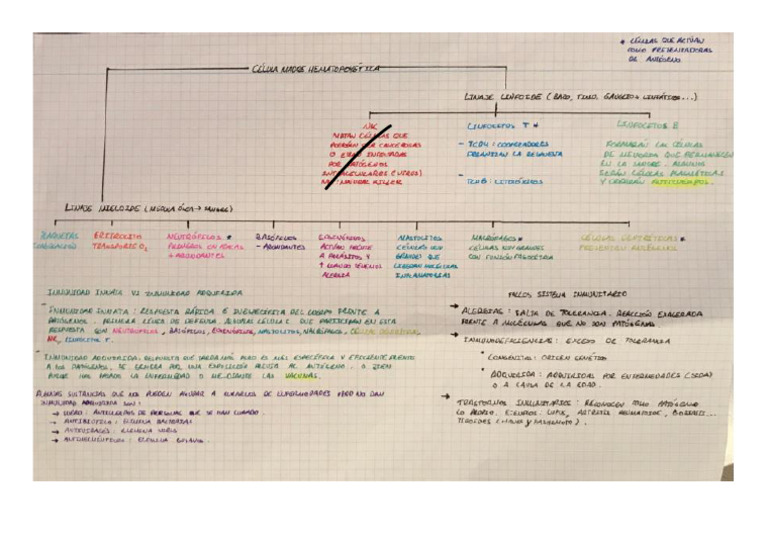 * CÉLULAS QUE ACTÚAN
COMO PRESENTADORAS
DE ANTÍGENO
CÉLULA MADRE HEMATOPOYÉTICA
LINAJE LINFOIDE (BAZO, TIMO, GANGLIOS LINFÁTICOS...)
NK
MATAN CÉLULAS QUE
PODRÍAN SER CANCEROSAS
O ESTAR INFECTADAS
POR PATÓGENOS
INTRACELULARES (VIRUS)
NK: NATURAL KILLER
LINFOCITOS T *
- TCD4: COOPERADORES
ORGANIZAN LA RESPUESTA
- TCD8: CITOTÓXICOS
LINFOCITOS B
FORMARÁN LAS CÉLULAS
DE MEMORIA QUE PERMANECEN
EN LA SANGRE. ALGUNOS
SERÁN CÉLULAS PLASMÁTICAS
Y LIBERAN ANTICUERPOS.
LINAJE MIELOIDE (MÉDULA ÓSEA → SANGRE)
PLAQUETAS
COAGULACIÓN
ERITROCITO
TRANSPORTE O2
NEUTRÓFILOS *
+ ABUNDANTES
BASÓFILOS
- ABUNDANTES
EOSINÓFILOS
ACTÚAN FRENTE
A PARÁSITOS Y
CUANDO TENEMOS
ALERGIA
MASTOCITOS
CÉLULAS MUY
GRANDES QUE
LIBERAN MOLÉCULAS
INFLAMATORIAS
MACRÓFAGOS *
CÉLULAS MUY GRANDES
CON FUNCIÓN FAGOCÍTICA
CÉLULAS DENDRÍTICAS *
PRESENTAN ANTÍGENOS
INMUNIDAD INNATA VS INMUNIDAD ADQUIRIDA
- INMUNIDAD INNATA: RESPUESTA RÁPIDA E INESPECÍFICA DEL CUERPO FRENTE A
PATÓGENOS. PRIMERA LÍNEA DE DEFENSA. ALGUNAS CÉLULAS QUE PARTICIPAN EN ESTA
RESPUESTA SON NEUTRÓFILOS, BASÓFILOS, EOSINÓFILOS, MASTOCITOS, MACRÓFAGOS, CÉLULAS DENDRÍTICAS,
NK, LINFOCITO T.
- INMUNIDAD ADQUIRIDA: RESPUESTA QUE TARDA MÁS PERO ES MÁS ESPECÍFICA Y EFICIENTE FRENTE
A LOS PATÓGENOS. SE GENERA POR UNA EXPOSICIÓN PREVIA AL ANTÍGENO. O BIEN
PORQUE HAS PASADO LA ENFERMEDAD O MEDIANTE LAS VACUNAS.
ALGUNAS SUSTANCIAS QUE NOS PUEDEN AYUDAR A CURARNOS DE ENFERMEDADES PERO NO DAN
INMUNIDAD ADQUIRIDA SON:
→ SUERO: ANTICUERPOS DE PERSONAS QUE SE HAN CURADO.
→ ANTIBIÓTICO: ELIMINA BACTERIAS
→ ANTIVIRALES: ELIMINA VIRUS
→ ANTIHELMÍNTICOS: ELIMINA
FALLOS SISTEMA INMUNITARIO
→ ALERGIAS: FALTA DE TOLERANCIA. REACCIÓN EXAGERADA
FRENTE A MOLÉCULAS QUE NO SON PATÓGENAS.
→ INMUNODEFICIENCIAS: EXCESO DE TOLERANCIA
* CONGÉNITAS: ORIGEN GENÉTICO
* ADQUIRIDA: ADQUIRIDAS POR ENFERMEDADES (SIDA)
O A CAUSA DE LA EDAD.
→ TRASTORNOS INMUNITARIOS: RECONOCEN COMO PATÓGENO
LO PROPIO. EJEMPLOS: LUPUS, ARTRITIS REUMATOIDE,
TIROIDES (GRAVES Y HASHIMOTO).